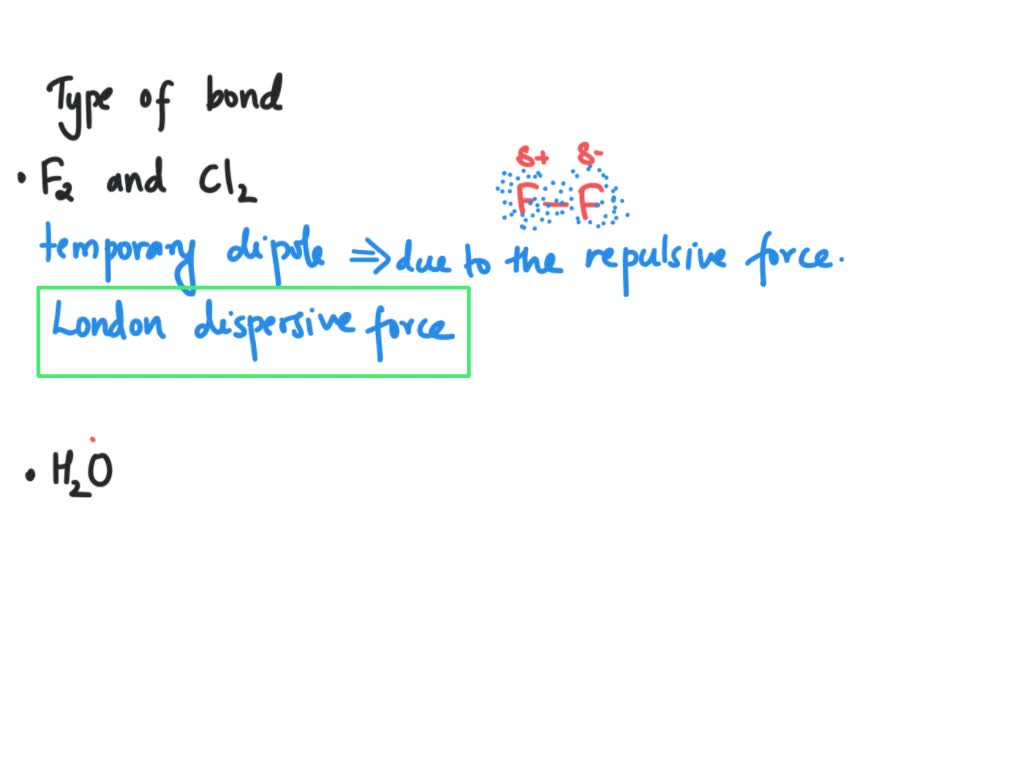 Type of bond
δ+ δ-
• F₂ and Cl₂
F-F
temporary dipole ⇒ due to the repulsive force.
London dispersive force
• H₂O